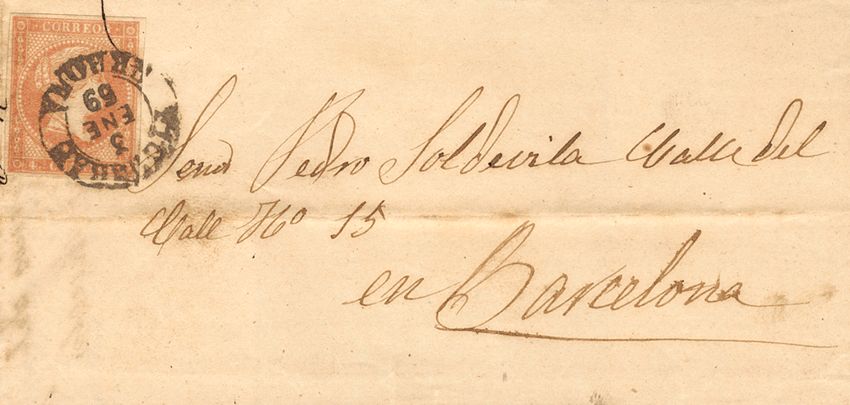 CORREOS
3
ENE
59
Senor Pedro Soldevila Calle del
Call Nº 15
en Barcelona